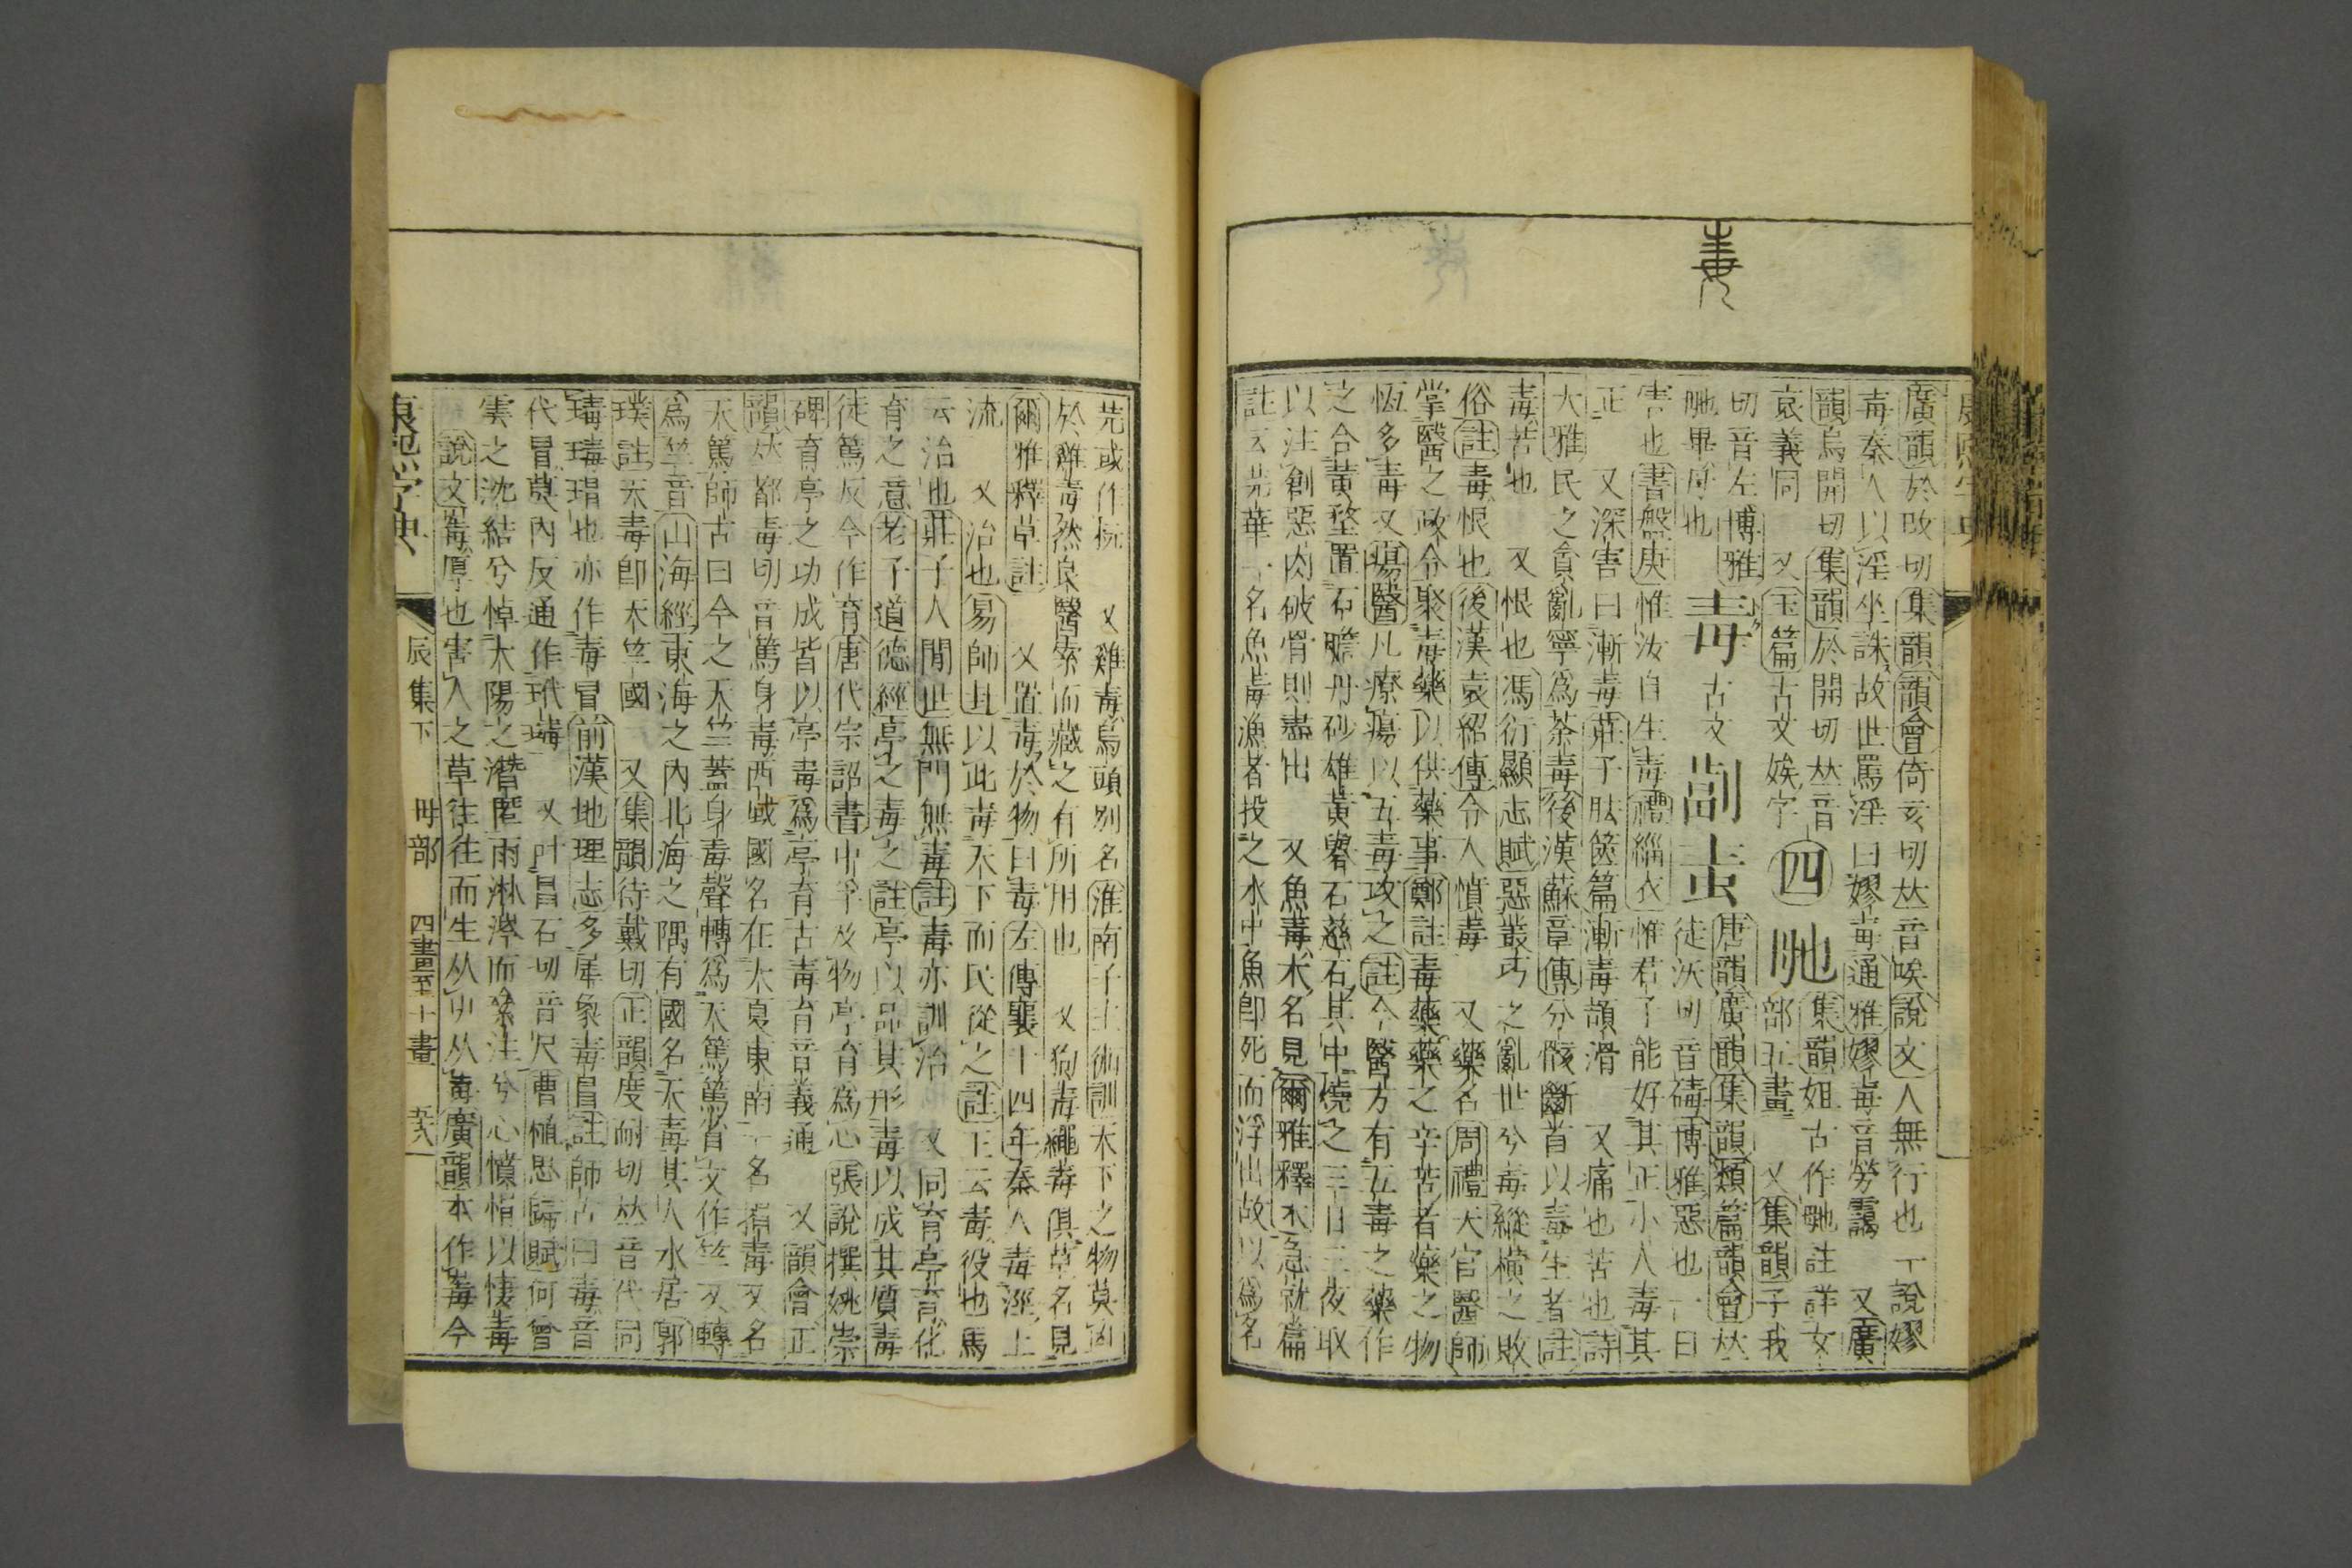 毒
廣韻於改切集韻韻會倚亥切𠀤音唉說文人無行也一說嫪
毐秦人以淫坐誅故世罵淫曰嫪毐通雅嫪毐音勞靄 又廣
韻烏開切集韻於開切𠀤音哀義同 又玉篇古文娭字
四 毑 集韻姐古作毑註詳女部五畫 又集韻子我
切音左博雅毑畢母也
毒 古文 𠚩 𧉅 唐韻廣韻集韻類篇韻會𠀤
徒沃切音碡博雅惡也一曰
害也書盤庚惟汝自生毒禮緇衣惟君子能好其正小人毒其
正 又深害曰漸毒莊子胠篋篇漸毒頡滑 又痛也苦也詩
大雅民之貪亂寧爲荼毒後漢蘇章傳分骸斷首以毒生者註
毒苦也 又恨也馮衍顯志賦惡叢巧之亂世兮毒縱橫之敗
俗註毒恨也後漢袁紹傳令人憤毒 又藥名周禮天官醫師
掌醫之政令聚毒藥以供藥事鄭註毒藥藥之辛苦者藥之物
恆多毒又瘍醫凡療瘍以五毒攻之註今醫方有五毒之藥作
之合黃堥置石膽丹砂雄黃礜石慈石其中燒之三日三夜取
以注創惡肉破骨則盡出 又魚毒木名見爾雅釋木急就篇
註云芫華一名魚毒漁者投之水中魚卽死而浮出故以爲名
芫或作杬 又雞毒烏頭別名淮南子主術訓天下之物莫凶
於雞毒然良醫橐而藏之有所用也 又狗毒繩毒俱草名見
爾雅釋草註 又置毒於物曰毒左傳襄十四年秦人毒涇上
流 又治也易師彖以此毒天下而民從之註王云毒役也馬
云治也莊子人閒世無門無毒註毒亦訓治 又同育亭育化
育之意老子道德經亭之毒之註亭以品其形毒以成其質毒
徒篤反今作育唐代宗詔書中孚及物亭育爲心張說撰姚崇
碑育亭之功成皆以亭毒爲亭育古毒育音義通 又韻會正
韻𠀤都毒切音篤身毒西域國名在大夏東南一名捐毒又名
天篤師古曰今之天竺蓋身毒聲轉爲天篤篤省文作竺又轉
爲竺音山海經東海之內北海之隅有國名天毒其人水居郭
璞註天毒卽天竺國 又集韻待戴切正韻度耐切𠀤音代同
瑇瑇瑁也亦作毒冒前漢地理志多犀象毒冒註師古曰毒音
代冒莫內反通作玳瑇 又叶昌石切音尺曹植思歸賦何曾
雲之沈結兮悼太陽之潛匿雨淋涔而累注兮心憤悁以悽毒
說文毒厚也害人之草往往而生从屮从毒廣韻本作毒今
康熙字典 辰集下 毋部 四畫至十畫